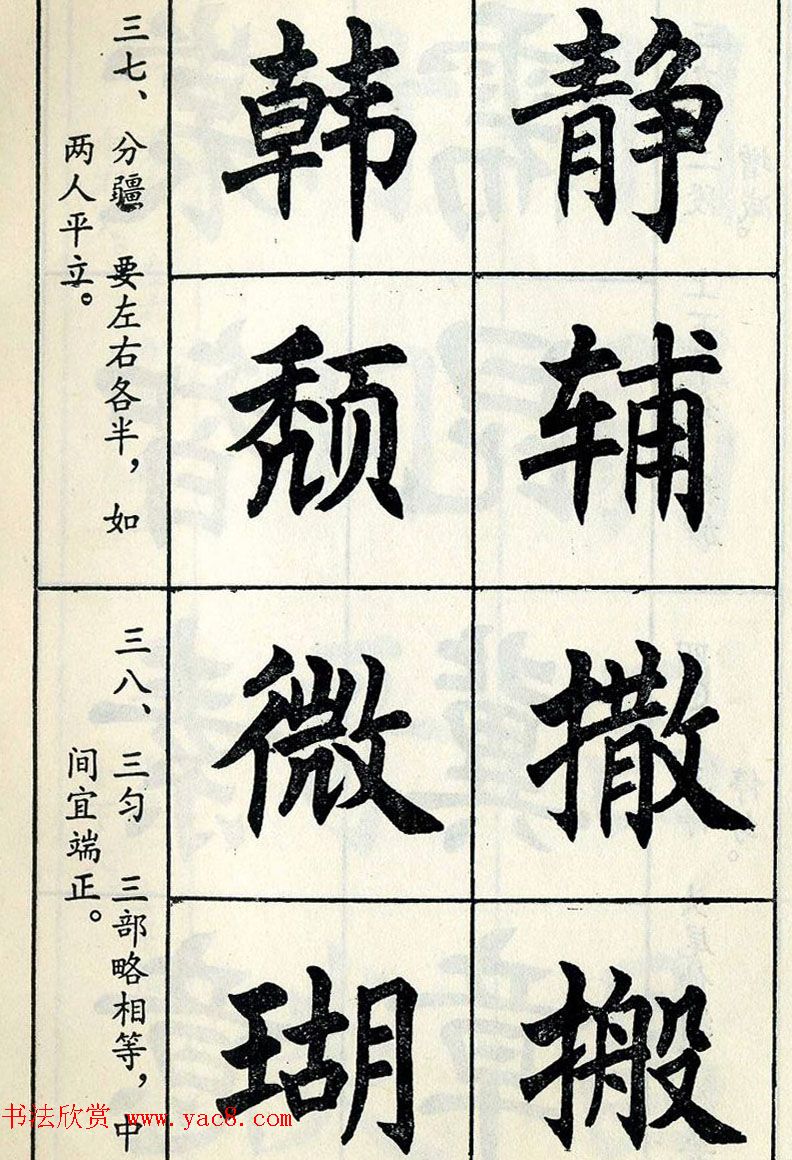 三七、分疆 要左右各半，如
两人平立。
静
韩
辅
颓
三八、三匀 三部略相等，中
间宜端正。
撒
微
搬
瑚
书法欣赏 www.yac8.com